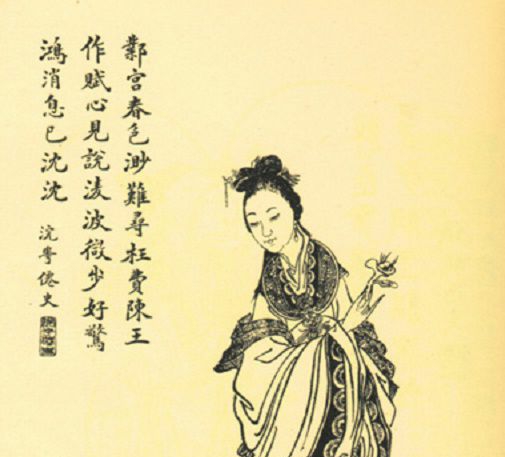 鄴宮春色渺難尋枉費陳王
作賦心見說淩波微步好驚
鴻消息已沈沈
僊史